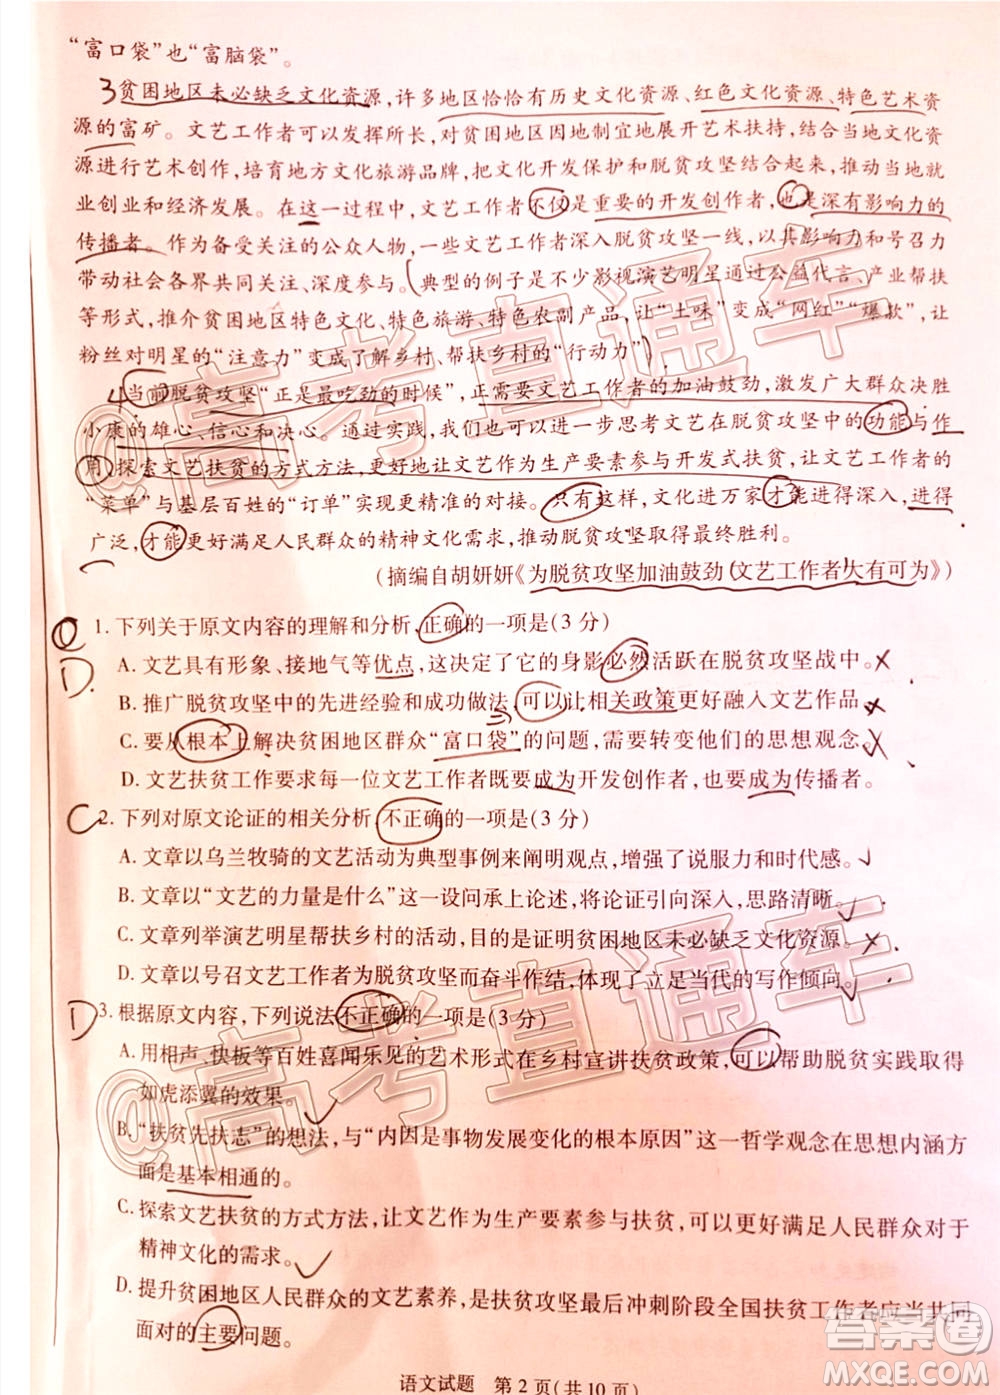 “富口袋”也“富脑袋”。
3贫困地区未必缺乏文化资源,许多地区恰恰有历史文化资源、红色文化资源、特色艺术资
源的富矿。文艺工作者可以发挥所长,对贫困地区因地制宜地展开艺术扶持,结合当地文化资
源进行艺术创作,培育地方文化旅游品牌,把文化开发保护和脱贫攻坚结合起来,推动当地就
业创业和经济发展。在这一过程中,文艺工作者不仅是重要的开发创作者,也是深有影响力的
传播者。作为备受关注的公众人物,一些文艺工作者深入脱贫攻坚一线,以其影响力和号召力
带动社会各界共同关注、深度参与。典型的例子是不少影视演艺明星通过公益代言、产业帮扶
等形式,推介贫困地区特色文化、特色旅游、特色农副产品,让“土味”变成“网红”“爆款”,让
粉丝对明星的“注意力”变成了解乡村、帮扶乡村的“行动力”。
4当前脱贫攻坚“正是最吃劲的时候”,正需要文艺工作者的加油鼓劲,激发广大群众决胜
小康的雄心、信心和决心。通过实践,我们也可以进一步思考文艺在脱贫攻坚中的功能与作
用,探索文艺扶贫的方式方法,更好地让文艺作为生产要素参与开发式扶贫,让文艺工作者的
“菜单”与基层百姓的“订单”实现更精准的对接。只有这样,文化进万家才能进得深入,进得
广泛,才能更好满足人民群众的精神文化需求,推动脱贫攻坚取得最终胜利。
(摘编自胡妍妍《为脱贫攻坚加油鼓劲 文艺工作者大有可为》)
1. 下列关于原文内容的理解和分析,正确的一项是(3分)
D.
A. 文艺具有形象、接地气等优点,这决定了它的身影必然活跃在脱贫攻坚战中。
B. 推广脱贫攻坚中的先进经验和成功做法,可以让相关政策更好融入文艺作品
C. 要从根本上解决贫困地区群众“富口袋”的问题,需要转变他们的思想观念
D. 文艺扶贫工作要求每一位文艺工作者既要成为开发创作者,也要成为传播者。
C
2. 下列对原文论证的相关分析,不正确的一项是(3分)
A. 文章以乌兰牧骑的文艺活动为典型事例来阐明观点,增强了说服力和时代感。
B. 文章以“文艺的力量是什么”这一设问承上论述,将论证引向深入,思路清晰。
C. 文章列举演艺明星帮扶乡村的活动,目的是证明贫困地区未必缺乏文化资源。
D. 文章以号召文艺工作者为脱贫攻坚而奋斗作结,体现了立足当代的写作倾向。
D
3. 根据原文内容,下列说法不正确的一项是(3分)
A. 用相声、快板等百姓喜闻乐见的艺术形式在乡村宣讲扶贫政策,可以帮助脱贫实践取得
如虎添翼的效果。
B. “扶贫先扶志”的想法,与“内因是事物发展变化的根本原因”这一哲学观念在思想内涵方
面是基本相通的。
C. 探索文艺扶贫的方式方法,让文艺作为生产要素参与扶贫,可以更好满足人民群众对于
精神文化的需求。
D. 提升贫困地区人民群众的文艺素养,是扶贫攻坚最后冲刺阶段全国扶贫工作者应当共同
面对的主要问题。
语文试题 第2页(共10页)
@高考直通车
@高考直通车
答案圈
MXQE.COM